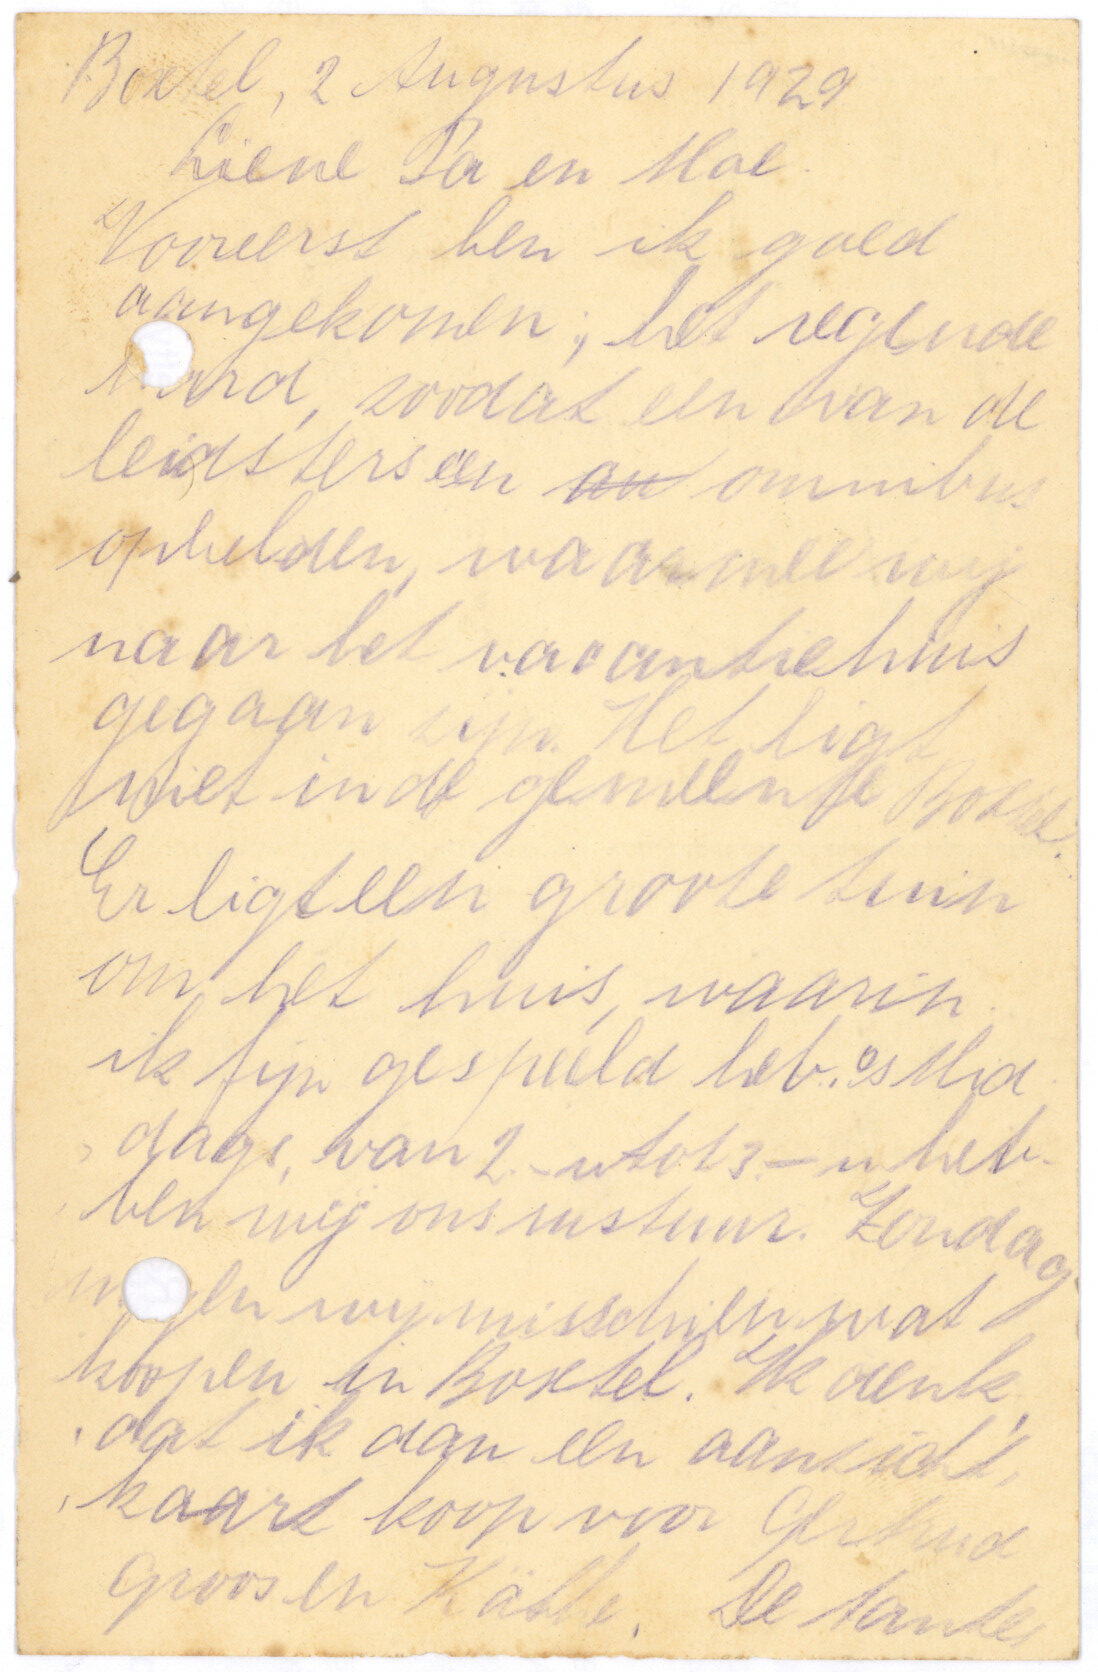 Boxtel, 2 Augustus 1929
Lieve Pa en Moe.
Vooreerst ben ik goed
aangekomen; het regende
hard, zoodat een van de
leidsters een omnibus
ophelden, waarmee wij
naar het vacantiehuis
gegaan zijn. Het ligt
niet in de gemeente Boxtel.
Er ligt een groote tuin
om het huis, waarin
ik fijn gespeeld heb. 's Mid
dags, van 2.- u tot 3.- u heb-
ben wij ons rustuur. Zondag
mogen wij misschien wat
koopen in Boxtel. Ik denk,
dat ik dan een aanzicht,
kaart koop voor Gertrud
Groos en Käthe. De tantes